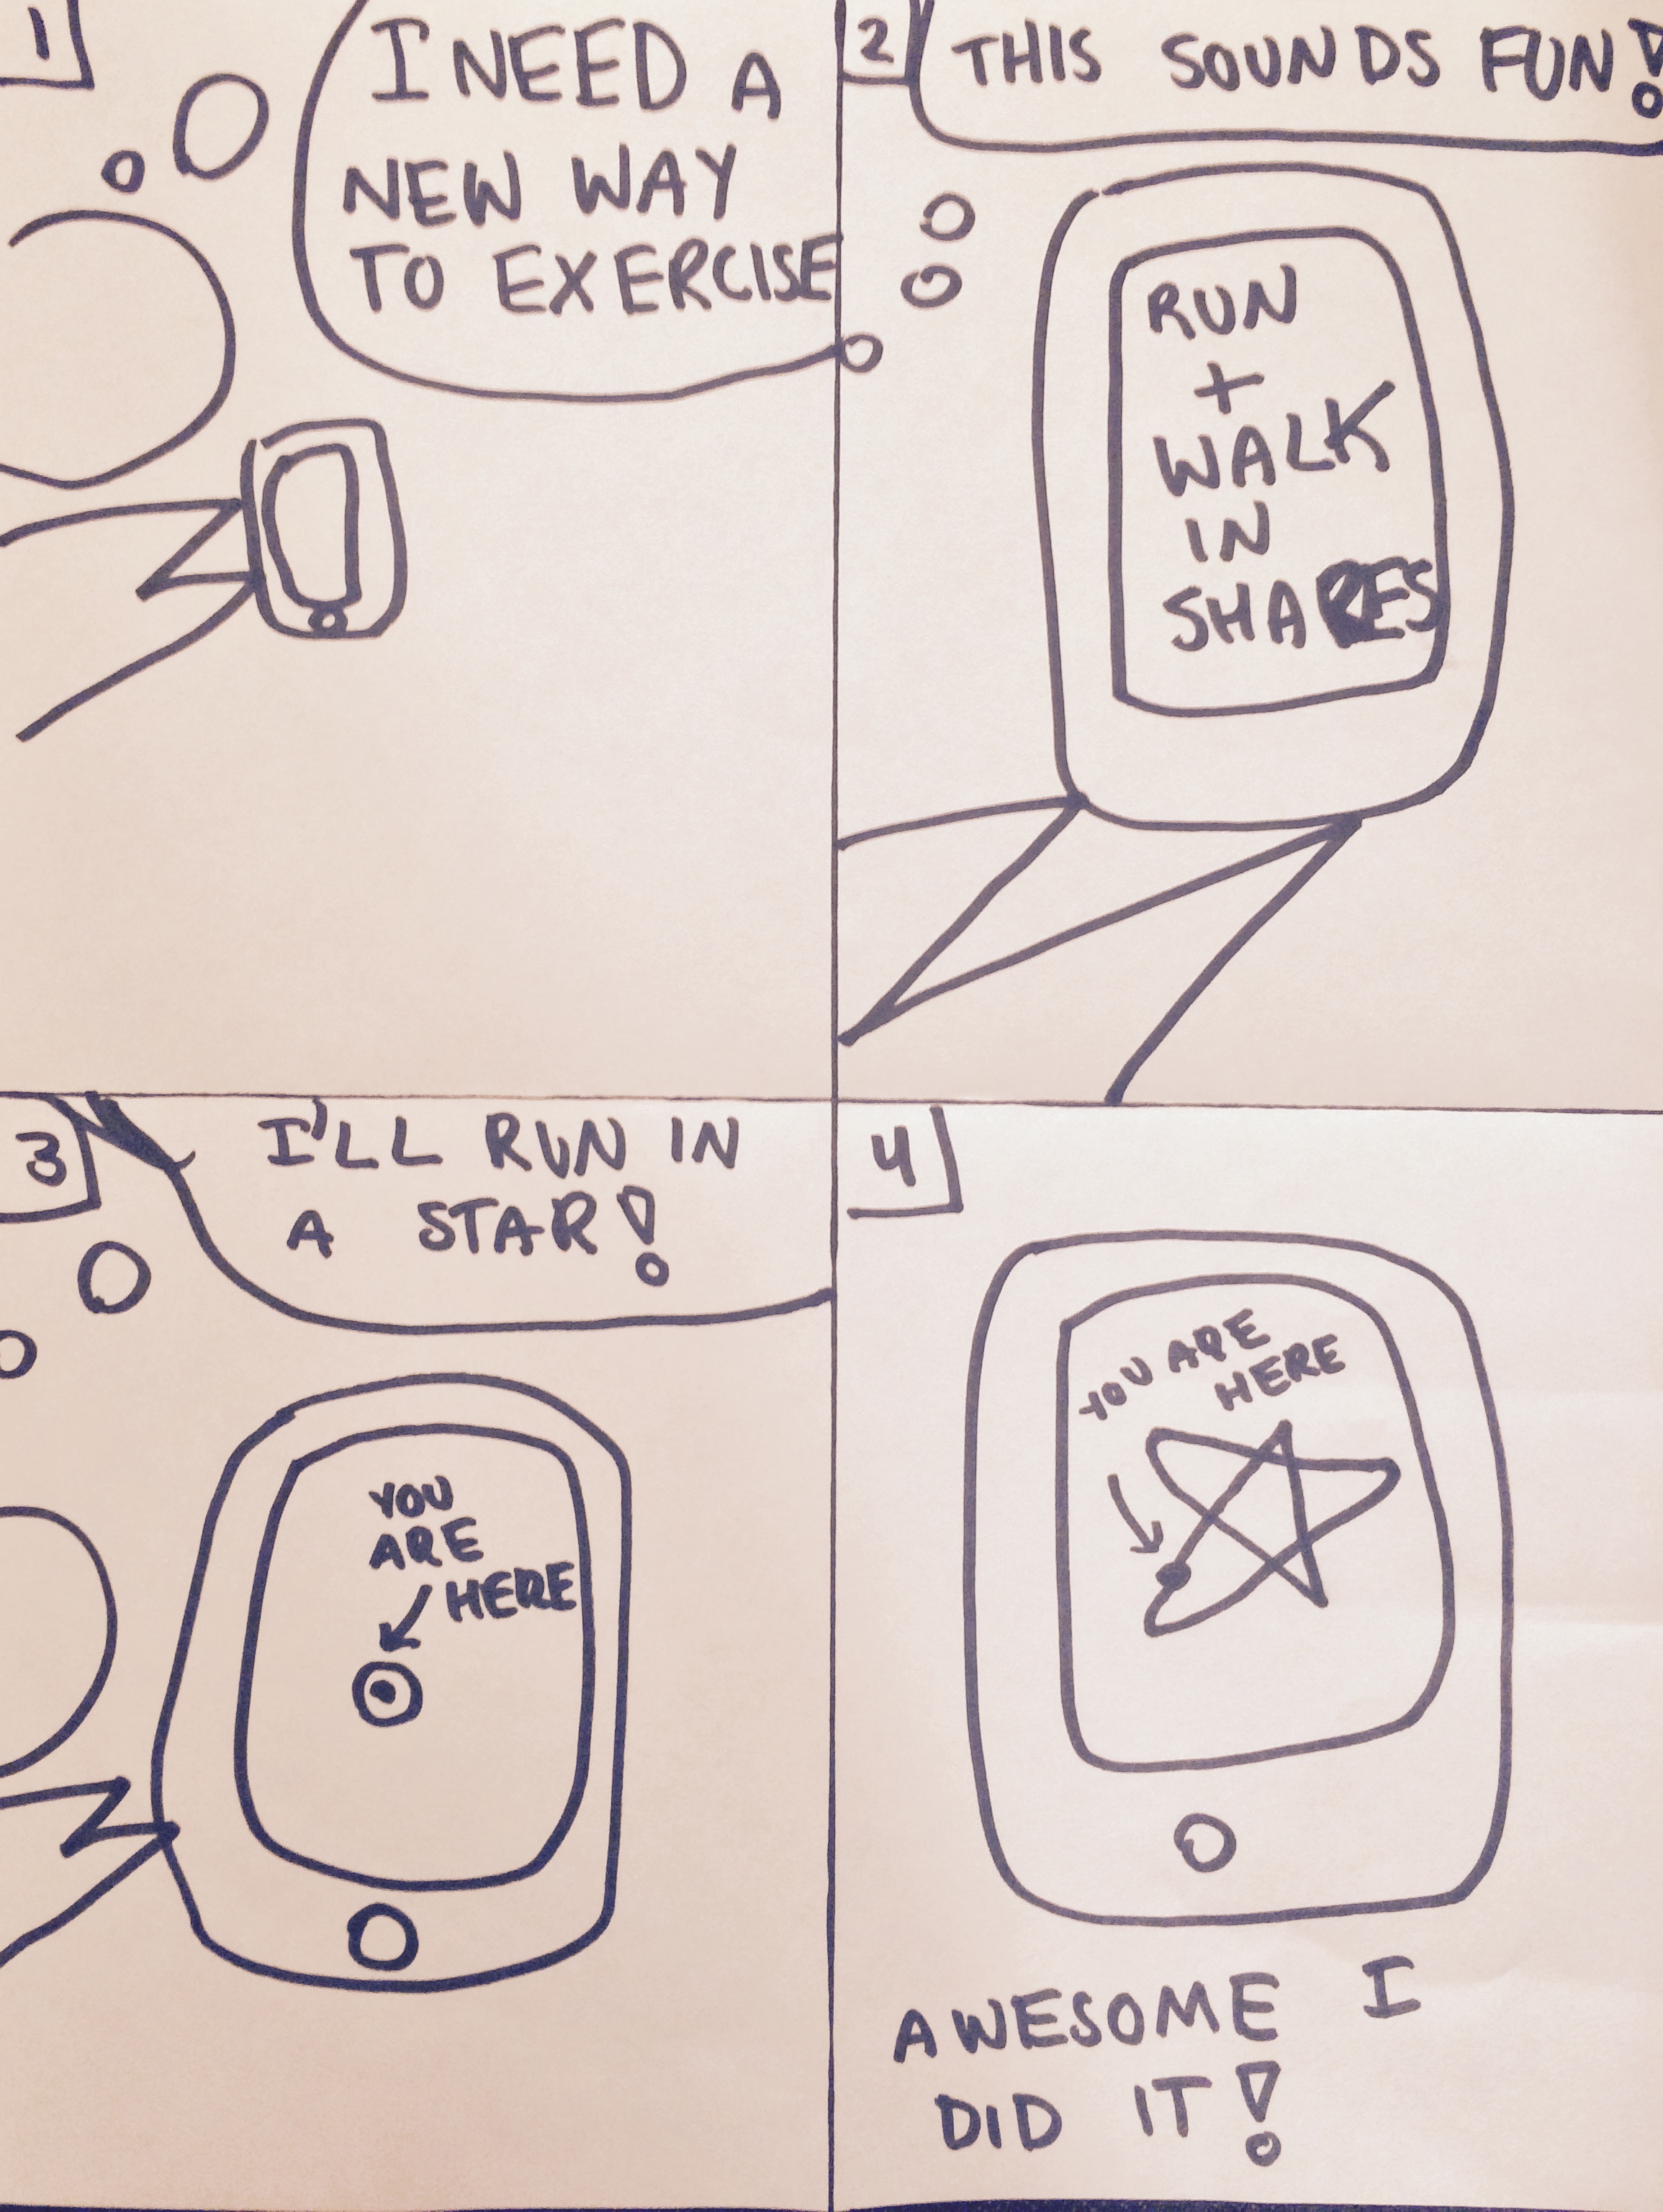 1
I NEED A
NEW WAY
TO EXERCISE
2
THIS SOUNDS FUN!
RUN
+
WALK
IN
SHAPES
3
I'LL RUN IN
A STAR!
YOU
ARE
HERE
4
YOU ARE
HERE
AWESOME I
DID IT!